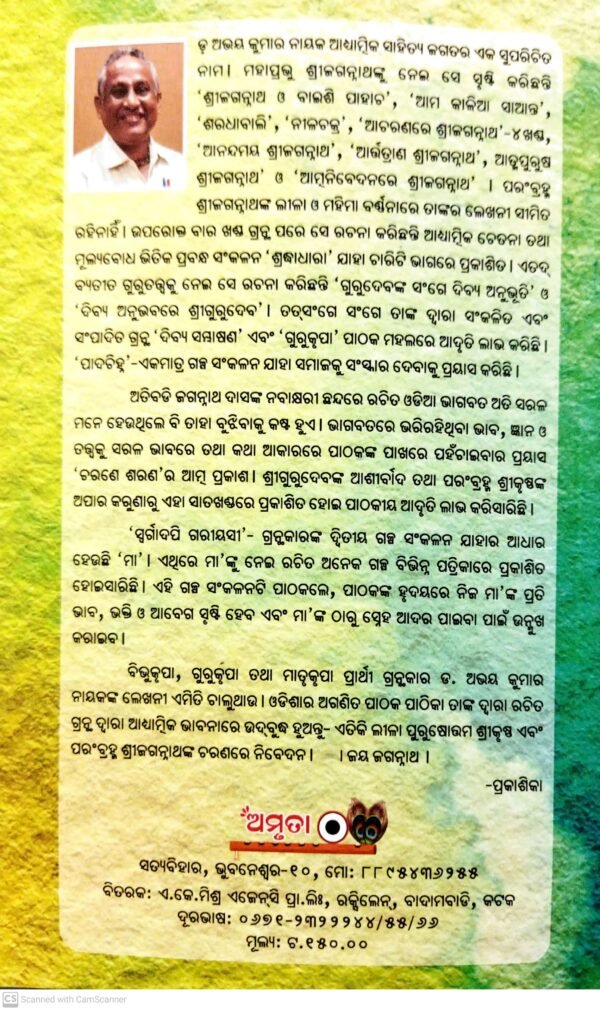 ଡ଼ ଅଭୟ କୁମାର ନାୟକ ଆଧ୍ୟାତ୍ମିକ ସାହିତ୍ୟ ଜଗତର ଏକ ସୁପରିଚିତ
ନାମ। ମହାପ୍ରଭୁ ଶ୍ରୀଜଗନ୍ନାଥଙ୍କୁ ନେଇ ସେ ସୃଷ୍ଟି କରିଛନ୍ତି
‘ଶ୍ରୀଜଗନ୍ନାଥ ଓ ବାଇଶି ପାହାଚ’, ‘ଆମ କାଳିଆ ସାଆନ୍ତ’,
‘ଶରଧାବାଲି’, ‘ନୀଳଚକ୍ର’, ‘ଆଚରଣରେ ଶ୍ରୀଜଗନ୍ନାଥ’-୪ଖଣ୍ଡ,
‘ଆନନ୍ଦମୟ ଶ୍ରୀଜଗନ୍ନାଥ’, ‘ଆର୍ତ୍ତତ୍ରାଣ ଶ୍ରୀଜଗନ୍ନାଥ’, ଆତ୍ମପୁରୁଷ
ଶ୍ରୀଜଗନ୍ନାଥ’ ଓ ‘ଆତ୍ମନିବେଦନରେ ଶ୍ରୀଜଗନ୍ନାଥ’ । ପରଂବ୍ରହ୍ମ
ଶ୍ରୀଜଗନ୍ନାଥଙ୍କ ଲୀଳା ଓ ମହିମା ବର୍ଣ୍ଣନାରେ ତାଙ୍କର ଲେଖନୀ ସୀମିତ
ରହିନାହିଁ। ଉପରୋକ୍ତ ବାର ଖଣ୍ଡ ଗ୍ରନ୍ଥ ପରେ ସେ ରଚନା କରିଛନ୍ତି ଆଧ୍ୟାତ୍ମିକ ଚେତନା ତଥା
ମୂଲ୍ୟବୋଧ ଭିତିକ ପ୍ରବନ୍ଧ ସଂକଳନ ‘ଶ୍ରଦ୍ଧାଧାରା’ ଯାହା ଚାରିଟି ଭାଗରେ ପ୍ରକାଶିତ। ଏତଦ୍
ବ୍ୟତୀତ ଗୁରୁତତ୍ତ୍ୱକୁ ନେଇ ସେ ରଚନା କରିଛନ୍ତି ‘ଗୁରୁଦେବଙ୍କ ସଂଗେ ଦିବ୍ୟ ଅନୁଭୂତି’ ଓ
‘ଦିବ୍ୟ ଅନୁଭବରେ ଶ୍ରୀଗୁରୁଦେବ’। ତତ୍‌ସଂଗେ ସଂଗେ ତାଙ୍କ ଦ୍ୱାରା ସଂକଳିତ ଏବଂ
ସଂପାଦିତ ଗ୍ରନ୍ଥ ‘ଦିବ୍ୟ ସମ୍ଭାଷଣ’ ଏବଂ ‘ଗୁରୁକୃପା’ ପାଠକ ମହଲରେ ଆଦୃତି ଲାଭ କରିଛି।
‘ପାଦଚିହ୍ନ’-ଏକମାତ୍ର ଗଳ୍ପ ସଂକଳନ ଯାହା ସମାଜକୁ ସଂସ୍କାର ଦେବାକୁ ପ୍ରୟାସ କରିଛି।
ଅତିବଡି ଜଗନ୍ନାଥ ଦାସଙ୍କ ନବାକ୍ଷରୀ ଛନ୍ଦରେ ରଚିତ ଓଡିଆ ଭାଗବତ ଅତି ସରଳ
ମନେ ହେଉଥିଲେ ବି ତାହା ବୁଝିବାକୁ କଷ୍ଟ ହୁଏ। ଭାଗବତରେ ଭରିରହିଥିବା ଭାବ, ଜ୍ଞାନ ଓ
ତତ୍ତ୍ୱକୁ ସରଳ ଭାବରେ ତଥା କଥା ଆକାରରେ ପାଠକଙ୍କ ପାଖରେ ପହଁଚାଇବାର ପ୍ରୟାସ
‘ଚରଣେ ଶରଣ’ର ଆତ୍ମ ପ୍ରକାଶ। ଶ୍ରୀଗୁରୁଦେବଙ୍କ ଆଶୀର୍ବାଦ ତଥା ପରଂବ୍ରହ୍ମ ଶ୍ରୀକୃଷ୍ଣଙ୍କ
ଅପାର କରୁଣାରୁ ଏହା ସାତଖଣ୍ଡରେ ପ୍ରକାଶିତ ହୋଇ ପାଠକୀୟ ଆଦୃତି ଲାଭ କରିସାରିଛି।
‘ସ୍ୱର୍ଗାଦପି ଗରୀୟସୀ’- ଗ୍ରନ୍ଥକାରଙ୍କ ଦ୍ୱିତୀୟ ଗଳ୍ପ ସଂକଳନ ଯାହାର ଆଧାର
ହେଉଛି ‘ମା’। ଏଥିରେ ମା’ଙ୍କୁ ନେଇ ରଚିତ ଅନେକ ଗଳ୍ପ ବିଭିନ୍ନ ପତ୍ରିକାରେ ପ୍ରକାଶିତ
ହୋଇସାରିଛି। ଏହି ଗଳ୍ପ ସଂକଳନଟି ପାଠକଲେ, ପାଠକଙ୍କ ହୃଦୟରେ ନିଜ ମା’ଙ୍କ ପ୍ରତି
ଭାବ, ଭକ୍ତି ଓ ଆବେଗ ସୃଷ୍ଟି ହେବ ଏବଂ ମା’ଙ୍କ ଠାରୁ ସ୍ନେହ ଆଦର ପାଇବା ପାଇଁ ଉନ୍ମୁଖ
କରାଇବ।
ବିଭୁକୃପା, ଗୁରୁକୃପା ତଥା ମାତୃକୃପା ପ୍ରାର୍ଥୀ ଗ୍ରନ୍ଥକାର ଡ. ଅଭୟ କୁମାର
ନାୟକଙ୍କ ଲେଖନୀ ଏମିତି ଚାଲୁଥାଉ। ଓଡିଶାର ଅଗଣିତ ପାଠକ ପାଠିକା ତାଙ୍କ ଦ୍ୱାରା ରଚିତ
ଗ୍ରନ୍ଥ ଦ୍ୱାରା ଆଧ୍ୟାତ୍ମିକ ଭାବନାରେ ଉଦ୍‌ବୁଦ୍ଧ ହୁଅନ୍ତୁ- ଏତିକି ଲୀଳା ପୁରୁଷୋତ୍ତମ ଶ୍ରୀକୃଷ୍ଣ ଏବଂ
ପରଂବ୍ରହ୍ମ ଶ୍ରୀଜଗନ୍ନାଥଙ୍କ ଚରଣରେ ନିବେଦନ। । ଜୟ ଜଗନ୍ନାଥ ।
-ପ୍ରକାଶିକା
ଅମୃତା
ସତ୍ୟବିହାର, ଭୁବନେଶ୍ୱର-୧୦, ମୋ: ୮୮୯୫୪୩୬୨୫୫
ବିତରକ: ଏ.କେ.ମିଶ୍ର ଏଜେନ୍‌ସି ପ୍ରା.ଲିଃ, ରକ୍ସିଲେନ୍, ବାଦାମବାଡି, କଟକ
ଦୂରଭାଷ: ୦୬୭୧-୨୩୨୨୨୪୪/୫୫/୬୬
ମୂଲ୍ୟ: ଟ.୧୫୦.୦୦
CS Scanned with CamScanner